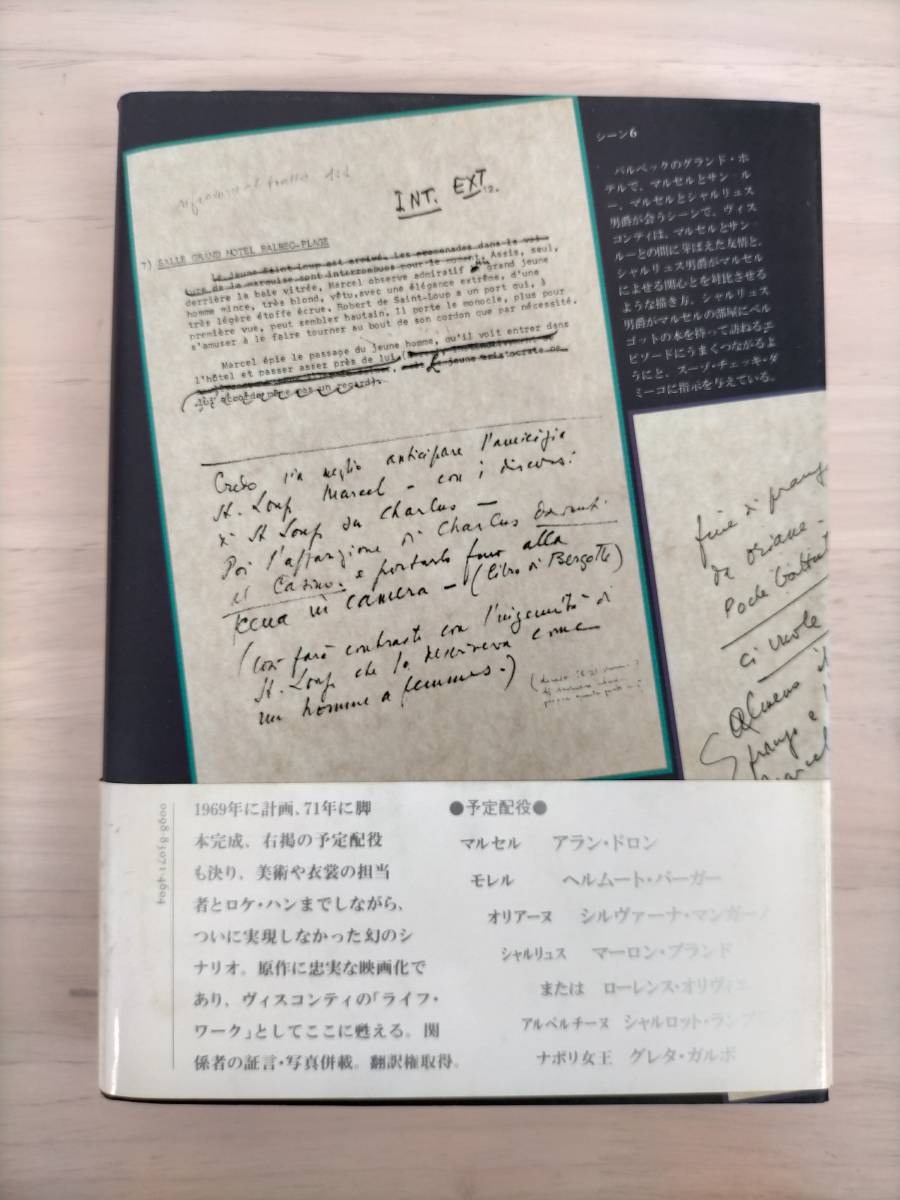 INT. EXT
12.
7) SALLE GRAND HOTEL BALBEC-PLAGE
Le jeune Saint-Loup est arrivé. Les promenades dans la voi-
ture de la marquise sont interrompues pour le moment. Assis, seul,
derrière la baie vitrée, Marcel observe admiratif grand jeune
homme mince, très blond, vêtu, avec une élégance extrême, d'une
très légère étoffe écrue. Robert de Saint-Loup a un port qui, à
première vue, peut sembler hautain. Il porte le monocle, plus pour
s'amuser à le faire tourner au bout de son cordon que par nécessité.
Marcel épie le passage du jeune homme, qu'il voit entrer dans
l'hôtel et passer assez près de lui
jeune aristocrate ne
lui accorde même pas un regard).
Credo sia meglio anticipare l'amicizia
St. Loup Marcel - con i discorsi
di St Loup su Charlus -
Poi l'apparizione di Charlus davanti
al Casino. e portarlo fino alla
scena in camera - (libro di Bergotte)
(Così farà contrasto con l'ingenuità di
St. Loup che lo descriveva come
un homme a femmes.)
シーン6
バルベックのグランド・ホ
テルで、マルセルとサン・ル
ー、マルセルとシャルリュス
男爵が会うシーンで、ヴィス
コンティは、マルセルとサン・
ルーとの間に芽ばえた友情と、
シャルリュス男爵がマルセル
によせる関心とを対比させる
ような描き方、シャルリュス
男爵がマルセルの部屋にベル
ゴットの本を持って訪ねるエ
ピソードにうまくつながるよ
うにと、スーゾ・チェッキ・ダ
ミーコに指示を与えている。
fine di pranz
da Oriane -
Poche battut
ci vuole
Almeno il
1969年に計画、71年に脚
本完成、右掲の予定配役
も決り、美術や衣裳の担当
者とロケ・ハンまでしながら、
ついに実現しなかった幻のシ
ナリオ。原作に忠実な映画化で
あり、ヴィスコンティの「ライフ・
ワーク」としてここに甦える。関
係者の証言・写真併載。翻訳権取得。
●予定配役●
マルセル アラン・ドロン
モレル ヘルムート・バーガー
オリアーヌ シルヴァーナ・マンガーノ
シャルリュス マーロン・ブランド
または ローレンス・オリヴィエ
アルベルチーヌ シャルロット・ランプリング
ナポリ女王 グレタ・ガルボ
0098-83071-4604